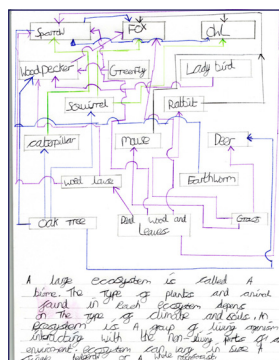 Sparrow FOX OWL
Woodpecker Greenfly Ladybird
Squirrel Rabbit
caterpillar mouse Deer
wood louse Earthworm
OAK TREE Dead wood and Leaves Grass
A large ecosystem is called A
biome. The type of plants and animal
found in each ecosystem depens
on the type of climate and soils. An
ecosystem is A group of living organisms
interacting with the non-living parts of
enviroment. ecosystem can vary in size A